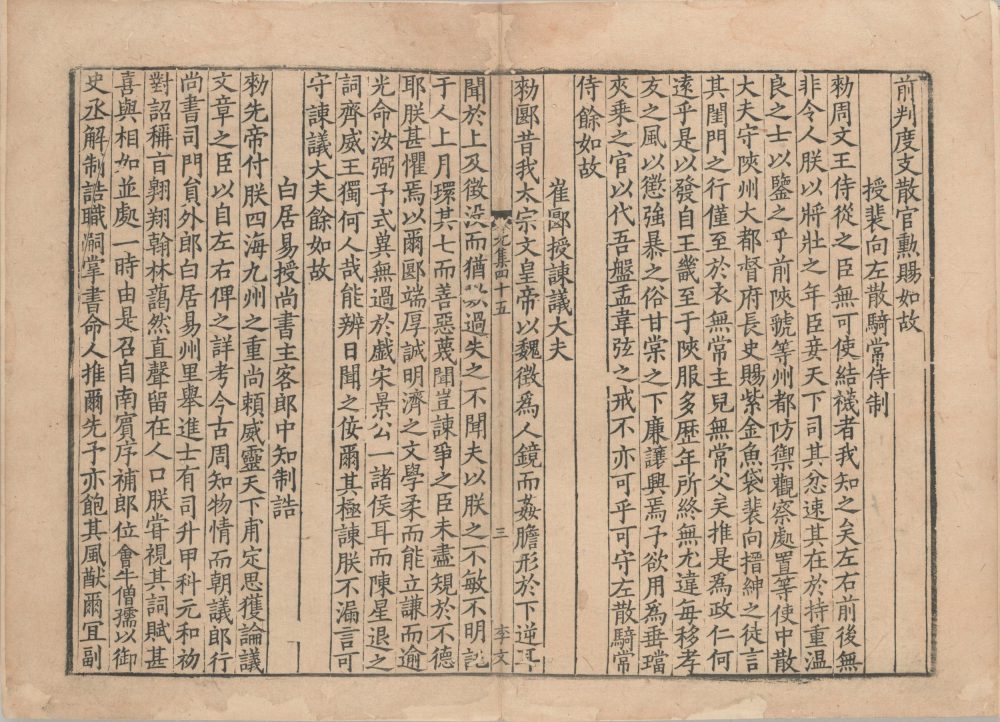 前判度支散官勲賜如故
授裴向左散騎常侍制
勑周文王侍從之臣無可使結襪者我知之矣左右前後無
非令人朕以將壯之年臣妾天下司其忿速其在於持重溫
良之士以鑒之乎前陜虢等州都防禦觀察處置等使中散
大夫守陜州大都督府長史賜紫金魚袋裴向搢紳之徒言
其閨門之行僅至於衣無常主兒無常父矣推是爲政仁何
遠乎是以發自王畿至于陜服多歴年所終無尤違每移孝
友之風以懲強暴之俗甘棠之下廉讓興焉予欲用爲垂璫
夾乗之官以代吾盤盂韋弦之戒不亦可乎可守左散騎常
侍餘如故
崔郾授諫議大夫
勑郾昔我太宗文皇帝以魏徵爲人鏡而姦膽形於下逆耳
元集四十五
三
李文
聞於上及徵没而猶以過失之不聞夫以朕之不敏不明託
于人上月環其七而善惡蔑聞豈諫爭之臣未盡規於不德
耶朕甚懼焉以爾郾端厚誠明濟之文學柔而能立謙而逾
光命汝弼予式冀無過於戯宋景公一諸侯耳而陳星退之
詞齊威王獨何人哉能辨日聞之佞爾其極諫朕不漏言可
守諫議大夫餘如故
白居易授尚書主客郎中知制誥
勑先帝付朕四海九州之重尚頼威靈天下甫定思獲論議
文章之臣以自左右俾之詳考今古周知物情而朝議郎行
尚書司門貟外郎白居易州里舉進士有司升甲科元和初
對詔稱百翺翔翰林藹然直聲留在人口朕甞視其詞賦甚
喜與相如並處一時由是召自南賔序補郎位會牛僧孺以御
史丞解制誥職嗣掌書命人推爾先予亦飽其風猷爾冝副